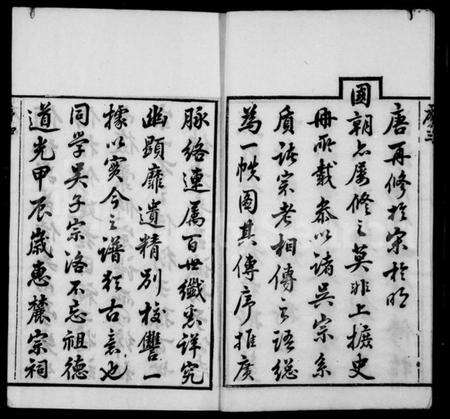 唐再修於宋於明
國朝亦屢修之莫非上摭史
冊所載叅以諸吳宗系
質諸宗老相傳之語總
為一帙圖其傳序推廣
脉絡連属百世纖悉詳究
幽顯靡遺精别校讐一
據以實今之譜猶古意也
同學吳子宗洛不忘祖德
道光甲辰歲惠麓宗祠